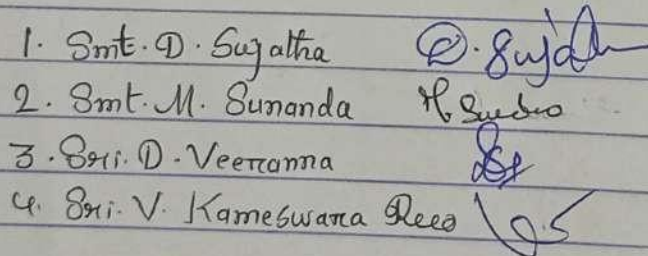 1. Smt. D. Sujatha D. Suja
2. Smt. M. Sunanda M
3. Sri. D. Veeranna
4. Sri. V. Kameswara Rao